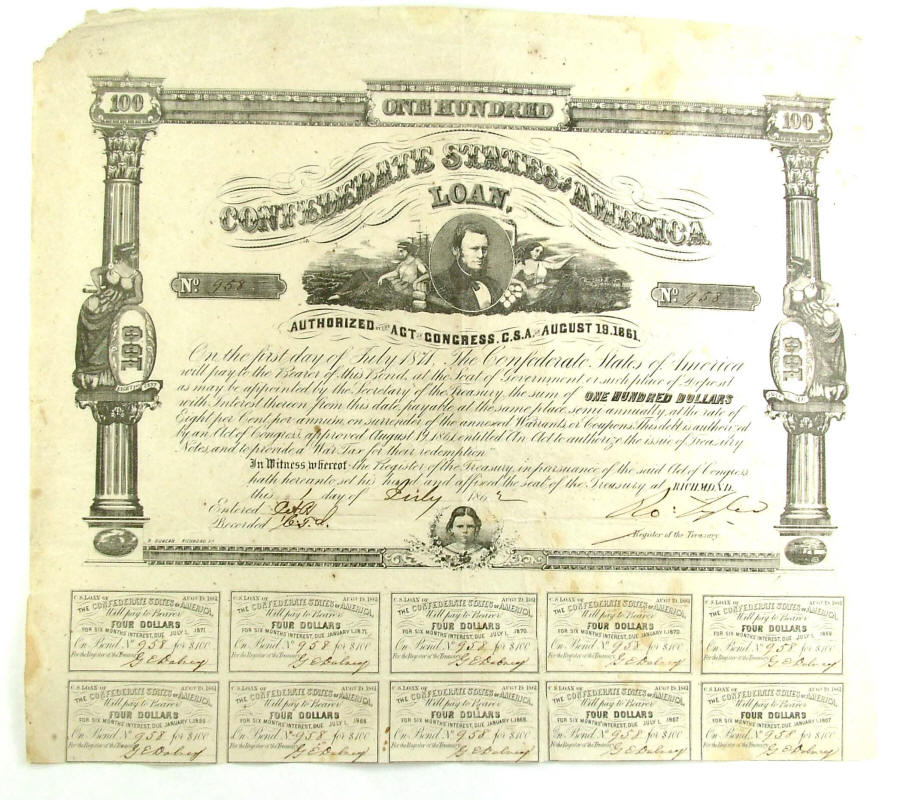 100
ONE HUNDRED
100
CONFEDERATE STATES OF AMERICA
LOAN,
No 958
No 958
AUTHORIZED BY THE ACT OF CONGRESS, C.S.A. OF AUGUST 19, 1861.
On the first day of July 1871, The Confederate States of America
will pay to the Bearer of this Bond, at the Seat of Government or such place of Deposit
as may be appointed by the Secretary of the Treasury, the sum of ONE HUNDRED DOLLARS
with Interest thereon from this date, payable at the same place, semi annually, at the rate of
Eight per Cent, per annum, on surrender of the annexed Warrants, or Coupons. This debt is authorized
by an Act of Congress, approved August 19, 1861, entitled An Act to authorize the issue of Treasury
Notes, and to provide a War Tax for their redemption
In Witness whereof the Register of the Treasury, in pursuance of the said Act of Congress
hath hereunto set his hand and affixed the seal of the Treasury at RICHMOND.
this 1 day of July 1862
Entered
Recorded
Ro. Tyler
Register of the Treasury.
R. DUNCAN. RICHMOND, VA.
C.S. LOAN OF AUGT 19, 1861
THE CONFEDERATE STATES OF AMERICA,
Will pay to Bearer
FOUR DOLLARS
FOR SIX MONTHS INTEREST, DUE JULY 1, 1871.
On Bond No 958 for $100
For the Register of the Treasury
G E Dabney
C.S. LOAN OF AUGT 19, 1861
THE CONFEDERATE STATES OF AMERICA,
Will pay to Bearer
FOUR DOLLARS
FOR SIX MONTHS INTEREST, DUE JANUARY 1, 1871.
On Bond No 958 for $100
For the Register of the Treasury
G E Dabney
C.S. LOAN OF AUGT 19, 1861
THE CONFEDERATE STATES OF AMERICA,
Will pay to Bearer
FOUR DOLLARS
FOR SIX MONTHS INTEREST, DUE JULY 1, 1870.
On Bond No 958 for $100
For the Register of the Treasury
G E Dabney
C.S. LOAN OF AUGT 19, 1861
THE CONFEDERATE STATES OF AMERICA,
Will pay to Bearer
FOUR DOLLARS
FOR SIX MONTHS INTEREST, DUE JANUARY 1, 1870.
On Bond No 958 for $100
For the Register of the Treasury
G E Dabney
C.S. LOAN OF AUGT 19, 1861
THE CONFEDERATE STATES OF AMERICA,
Will pay to Bearer
FOUR DOLLARS
FOR SIX MONTHS INTEREST, DUE JULY 1, 1869.
On Bond No 958 for $100
For the Register of the Treasury
G E Dabney
C.S. LOAN OF AUGT 19, 1861
THE CONFEDERATE STATES OF AMERICA,
Will pay to Bearer
FOUR DOLLARS
FOR SIX MONTHS INTEREST, DUE JANUARY 1, 1869.
On Bond No 958 for $100
For the Register of the Treasury
G E Dabney
C.S. LOAN OF AUGT 19, 1861
THE CONFEDERATE STATES OF AMERICA,
Will pay to Bearer
FOUR DOLLARS
FOR SIX MONTHS INTEREST, DUE JULY 1, 1868.
On Bond No 958 for $100
For the Register of the Treasury
G E Dabney
C.S. LOAN OF AUGT 19, 1861
THE CONFEDERATE STATES OF AMERICA,
Will pay to Bearer
FOUR DOLLARS
FOR SIX MONTHS INTEREST, DUE JANUARY 1, 1868.
On Bond No 958 for $100
For the Register of the Treasury
G E Dabney
C.S. LOAN OF AUGT 19, 1861
THE CONFEDERATE STATES OF AMERICA,
Will pay to Bearer
FOUR DOLLARS
FOR SIX MONTHS INTEREST, DUE JULY 1, 1867
On Bond No 958 for $100
For the Register of the Treasury
G E Dabney
C.S. LOAN OF AUGT 19, 1861
THE CONFEDERATE STATES OF AMERICA,
Will pay to Bearer
FOUR DOLLARS
FOR SIX MONTHS INTEREST, DUE JANUARY 1, 1867
On Bond No 958 for $100
For the Register of the Treasury
G E Dabney